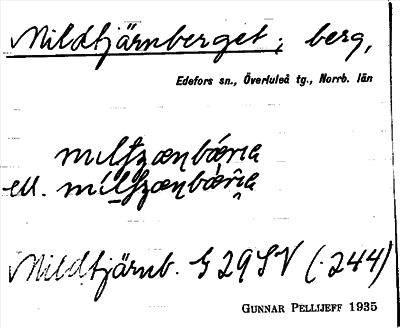 Mildtjärnberget; berg,
Edefors sn., Överluleå tg., Norrb. län
ell.
Mildtjärnb. G 29 SV (:244)
GUNNAR PELLIJEFF 1935